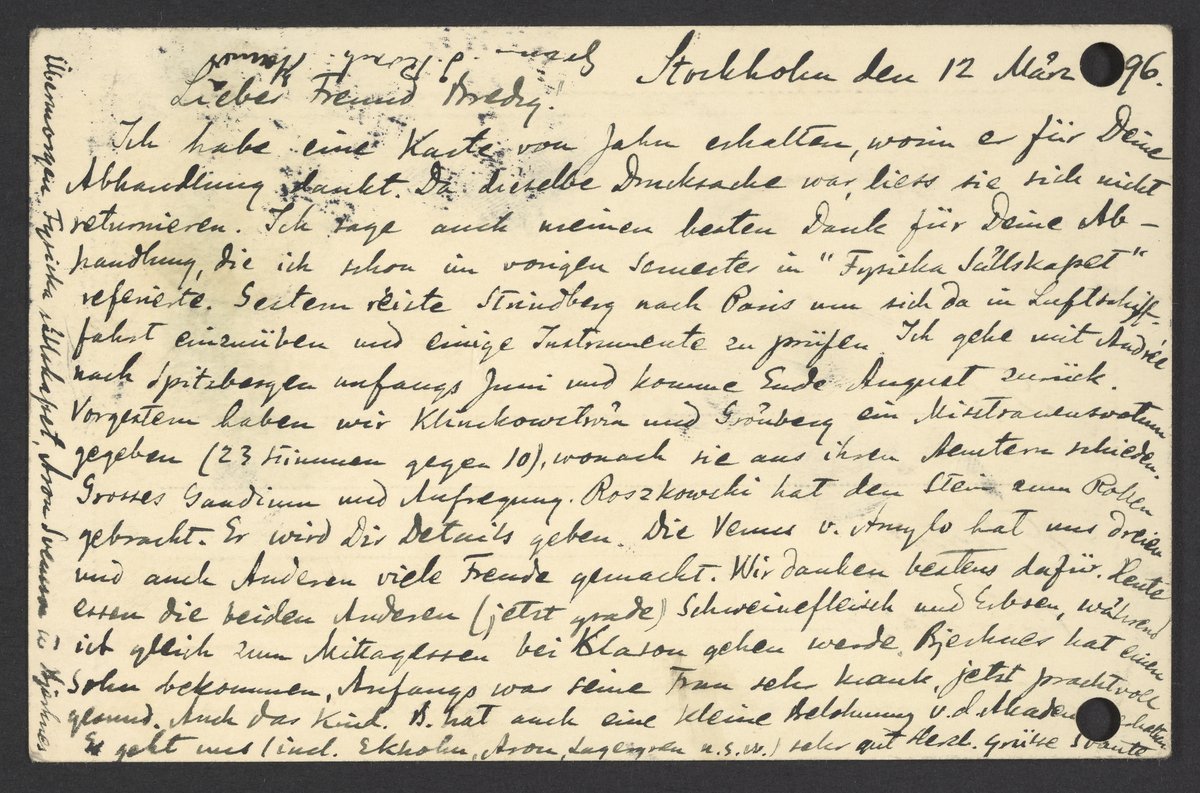 Stockholm den 12 März 96.
Lieber Freund Bredig!
Ich habe eine Karte von Jahn erhalten, worin er für Deine
Abhandlung dankt. Da dieselbe Drucksache war, liess sie sich nicht
returnieren. Ich sage auch meinen besten Dank für Deine Ab-
handlung, die ich schon im vorigen Semester in "Fysiska Sällskapet"
referierte. Gestern reiste Strindberg nach Paris um sich da in Luftschiff-
fahrt einzuüben und einige Instrumente zu prüfen. Ich gehe mit Andrée
nach Spitsbergen anfangs Juni und komme Ende August zurück.
Vorgestern haben wir Klinckowström und Grönberg ein Misstrauensvotum
gegeben (23 Stimmen gegen 10), wonach sie aus ihren Aemtern schieden.
Grosses Gaudium und Aufregung. Roszkowski hat den Stein zum Rollen
gebracht. Er wird Dir Details geben. Die Venus v. Amylo hat uns dreien
und auch Anderen viele Freude gemacht. Wir danken bestens dafür. Heute
essen die beiden Anderen (jetzt grade) Schweinefleisch und Erbsen, während
ich gleich zum Mittagessen bei Klason gehen werde. Bjerknes hat einen
Sohn bekommen. Anfangs war seine Frau sehr krank, jetzt prachtvoll
gesund. Auch das Kind. B. hat auch eine kleine Belohnung v. d. Akadem erhalten
Es geht uns (incl. Ekholm, Aron, Lagergren u.s.w.) sehr gut Herzl. Grüsse Svante
Übermorgen Fysiska sällskapet, Aron Svensson u. Bjerknes